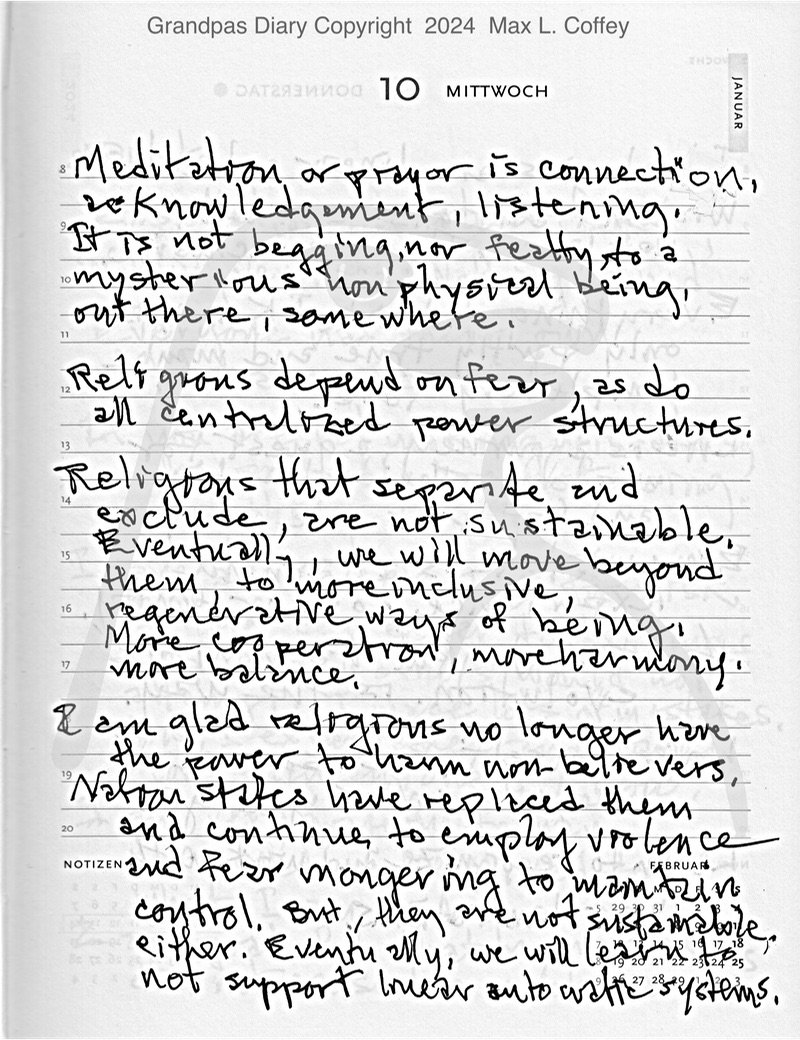 Grandpas Diary Copyright 2024 Max L. Coffey
10 MITTWOCH
JANUAR
8 Meditation or prayor is connection,
acknowledgement, listening.
9
It is not begging, nor fealty, to a
10 mysterious non physical being,
out there, somewhere.
11
12 Religions depend on fear, as do
all centralized power structures.
13
Religions that separate and
14
exclude, are not sustainable.
15 Eventually, we will move beyond
them, to more inclusive,
16 regenerative ways of being.
More cooperation, more harmony.
17 more balance.
I am glad religions no longer have
the power to harm non-believers.
19 Nation states have replaced them
20 and continue, to employ violence
NOTIZEN and fear mongering to maintain
FEBRUAR
control. But, they are not sustainable,
either. Eventually, we will learn to
not support linear autocratic systems.